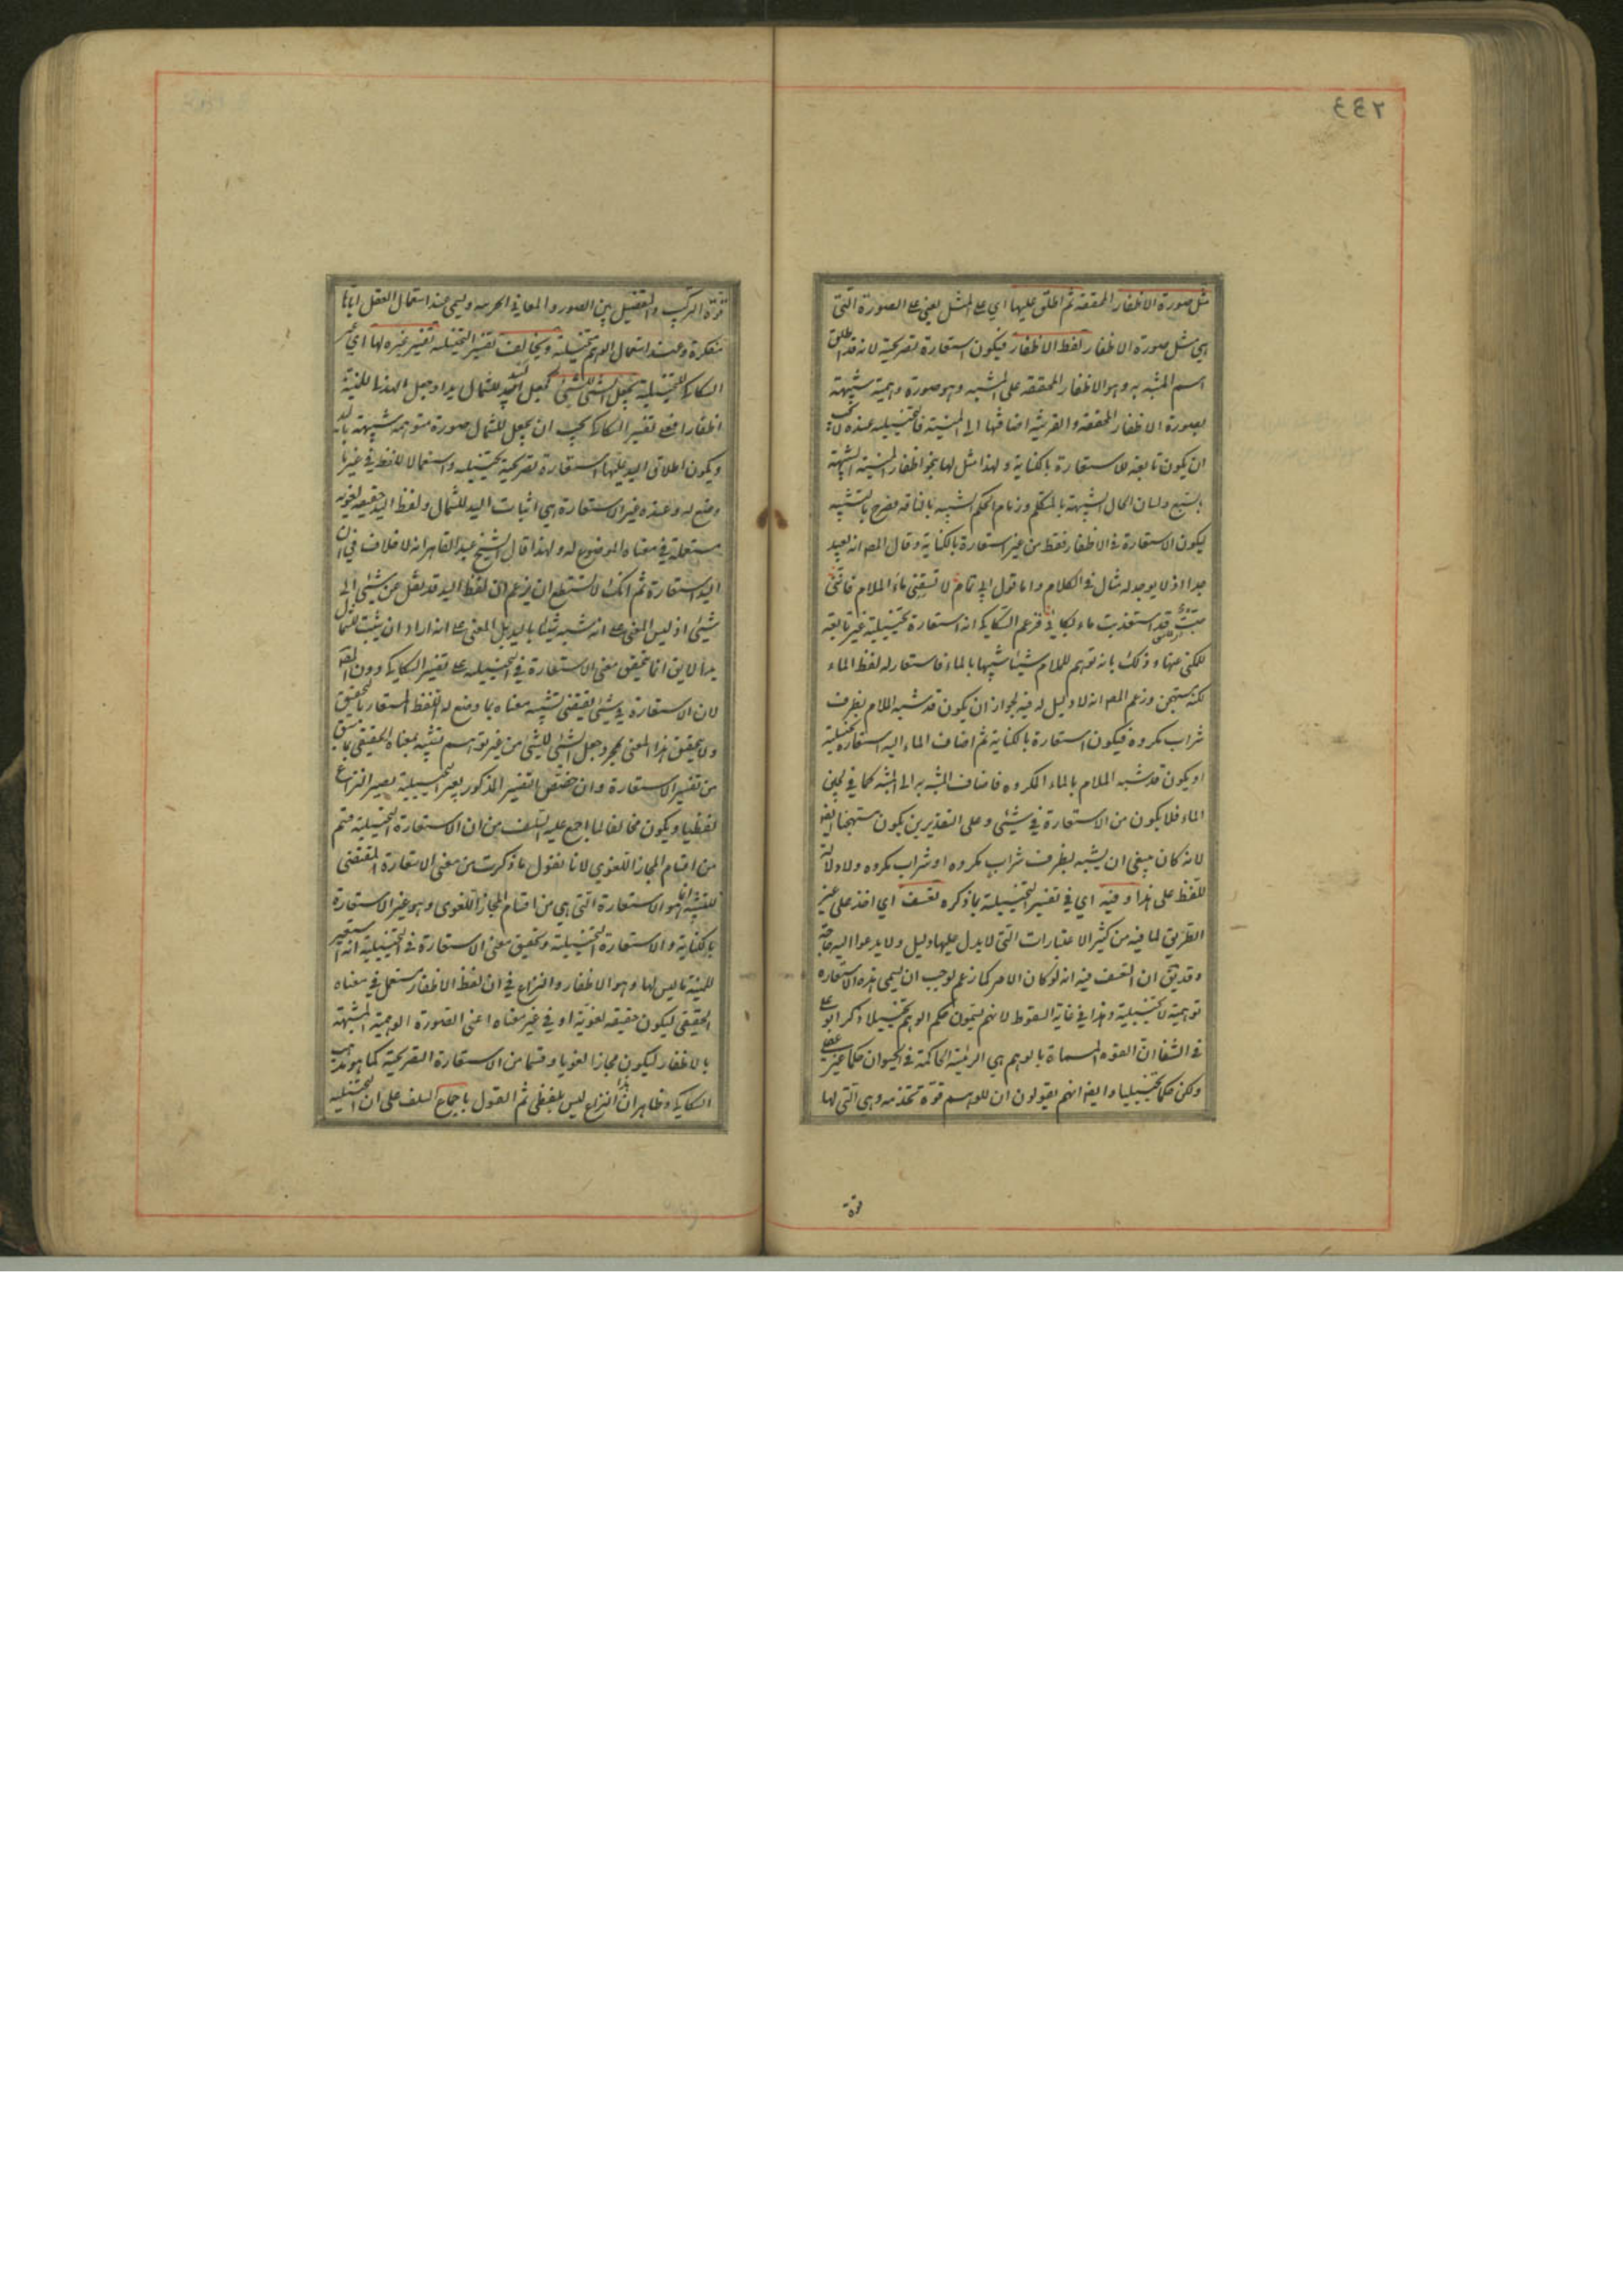 ٢٤٤
مثل صورة الاظفار المحققة ثم اطلق عليها اي على المثل يعني على الصورة التي
هي مثل صورة الاظفار لفظ الاظفار فيكون استعارة تصريحية لانه قد اطلق
اسم المشبه به وهو الاظفار المحققة على المشبه وهو صورة وهمية شبيهة
بصورة الاظفار المحققة والقرينة اضافتها الى المنية فالتخييلية عنده لا يجب
ان يكون تابعة للاستعارة بالكناية ولهذا مثل لها بنحو اظفار المنية الشبيهة
بالسبع ولسان الحال الشبيهة بالمتكلم وزمام الحكم الشبيه بالناقة فصرح بالتشبيه
ليكون الاستعارة في الاظفار فقط من غير استعارة بالكناية وقال المص انه بعيد
جدا اذ لا يوجد له مثال في الكلام واما قول ابي تمام لا تسقني ماء الملام فانني
صبّ قد استعذبت ماء بكائي فزعم السكاكي انه استعارة تخييلية غير تابعة
للمكني عنها وذلك بانه توهم للملام شيئا شبيها بالماء فاستعار له لفظ الماء
لكنه مستهجن وزعم المص انه لا دليل له فيه لجواز ان يكون قد شبه الملام بظرف
شراب مكروه فيكون استعارة بالكناية ثم اضاف الماء اليه استعارة تخييلية
او يكون قد شبه الملام بالماء المكروه فاضاف المشبه به الى المشبه كما في لجين
الماء فلا يكون من الاستعارة في شيئ وعلى التقديرين يكون مستهجنا ايضا
لانه كان ينبغي ان يشبه بظرف شراب مكروه او شراب مكروه ولا دلالة
للفظ على هذا وفيه اي في تفسير التخييلية بما ذكره تعسف اي اخذ على غير
الطريق لما فيه من كثير الاعتبارات التي لا يدل عليها دليل ولا يدعوا اليه حاجة
وقد يقال ان التعسف فيه انه لو كان الامر كما زعم لوجب ان يسمى هذه الاستعارة
توهمية لا تخييلية وهذا في غاية السقوط لانهم يسمون حكم الوهم تخييلا ذكر ابو علي
في الشفا ان القوة المسماة بالوهم هي الرئيسة الحاكمة في الحيوان حكما غير عقلي
ولكن حكما تخييليا وايضا انهم يقولون ان للوهم قوة تخدمه وهي التي لها
قوة
قوة التركيب والتفصيل بين الصور والمعاني الجزئية ويسمى عند استعمال العقل اياها
مفكرة وعند استعمال الوهم متخيلة ويخالف تفسير التخييلية تفسير غيره لها اي غير
السكاكي للتخييلية بجعل الشيئ للشيئ كجعل لبيد للشمال يدا وجعل الهذلي للمنية
اظفارا فعلى تفسير السكاكي يجب ان يجعل للشمال صورة متوهمة شبيهة باليد
ويكون اطلاق اليد عليها استعارة تصريحية تخييلية واستعمالا للفظ في غير ما
وضع له وعند غيره الاستعارة هي اثبات اليد للشمال ولفظ اليد حقيقة لغوية
مستعملة في معناه الموضوع له ولهذا قال الشيخ عبد القاهر انه لا خلاف في ان
اليد استعارة ثم انك لا تستطيع ان تزعم ان لفظ اليد قد نقل عن شيئ الى
شيئ اذ ليس المعنى على انه شبه شيئا باليد بل المعنى على انه اراد ان يثبت للشمال
يدا لا يق انما يتحقق معنى الاستعارة في التخييلية على تفسير السكاكي دون المص
لان الاستعارة في شيئ يقتضي تشبيه معناه بما وضع له اللفظ المستعار بالتحقيق
ولا يتحقق هذا المعنى بمجرد جعل الشيئ للشيئ من غير توهم تشبيه بمعناه الحقيقي كما سبق
من تفسير الاستعارة وان خصّص التفسير المذكور بغير التخييلية يصير النزاع
لفظيا ويكون مخالفا لما اجمع عليه السلف من ان الاستعارة التخييلية قسم
من اقسام المجاز اللغوي لانا نقول ما ذكرت من معنى الاستعارة المقتضي
للتشبيه انما هو الاستعارة التي هي من اقسام المجاز اللغوي وهو غير الاستعارة
بالكناية والاستعارة التخييلية وتحقيق معنى الاستعارة في التخييلية انه استعير
للمنية ما ليس لها وهو الاظفار والنزاع في ان لفظ الاظفار مستعمل في معناه
الحقيقي ليكون حقيقة لغوية او في غير معناه اعني الصورة الوهمية المشبهة
بالاظفار ليكون مجازا لغويا وقسما من الاستعارة التصريحية كما هو مذهب
السكاكي وظاهر ان هذا النزاع ليس بلفظي ثم القول باجماع السلف على ان التخييلية